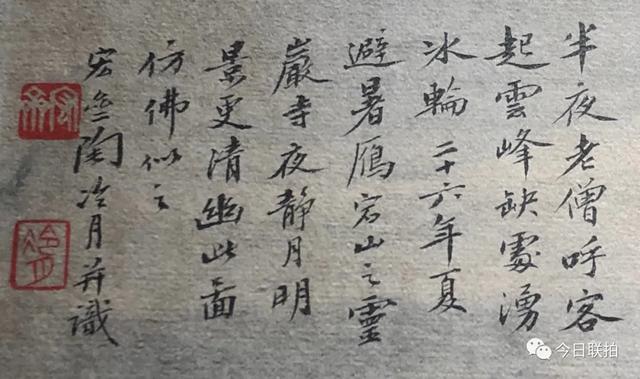 半夜老僧呼客
起雲峰缺處湧
冰輪二十六年夏
避暑鴈宕山之靈
巖寺夜靜月明
景更清幽此圖
仿佛似之
宏斋陶冷月并識
冷月
今日联拍